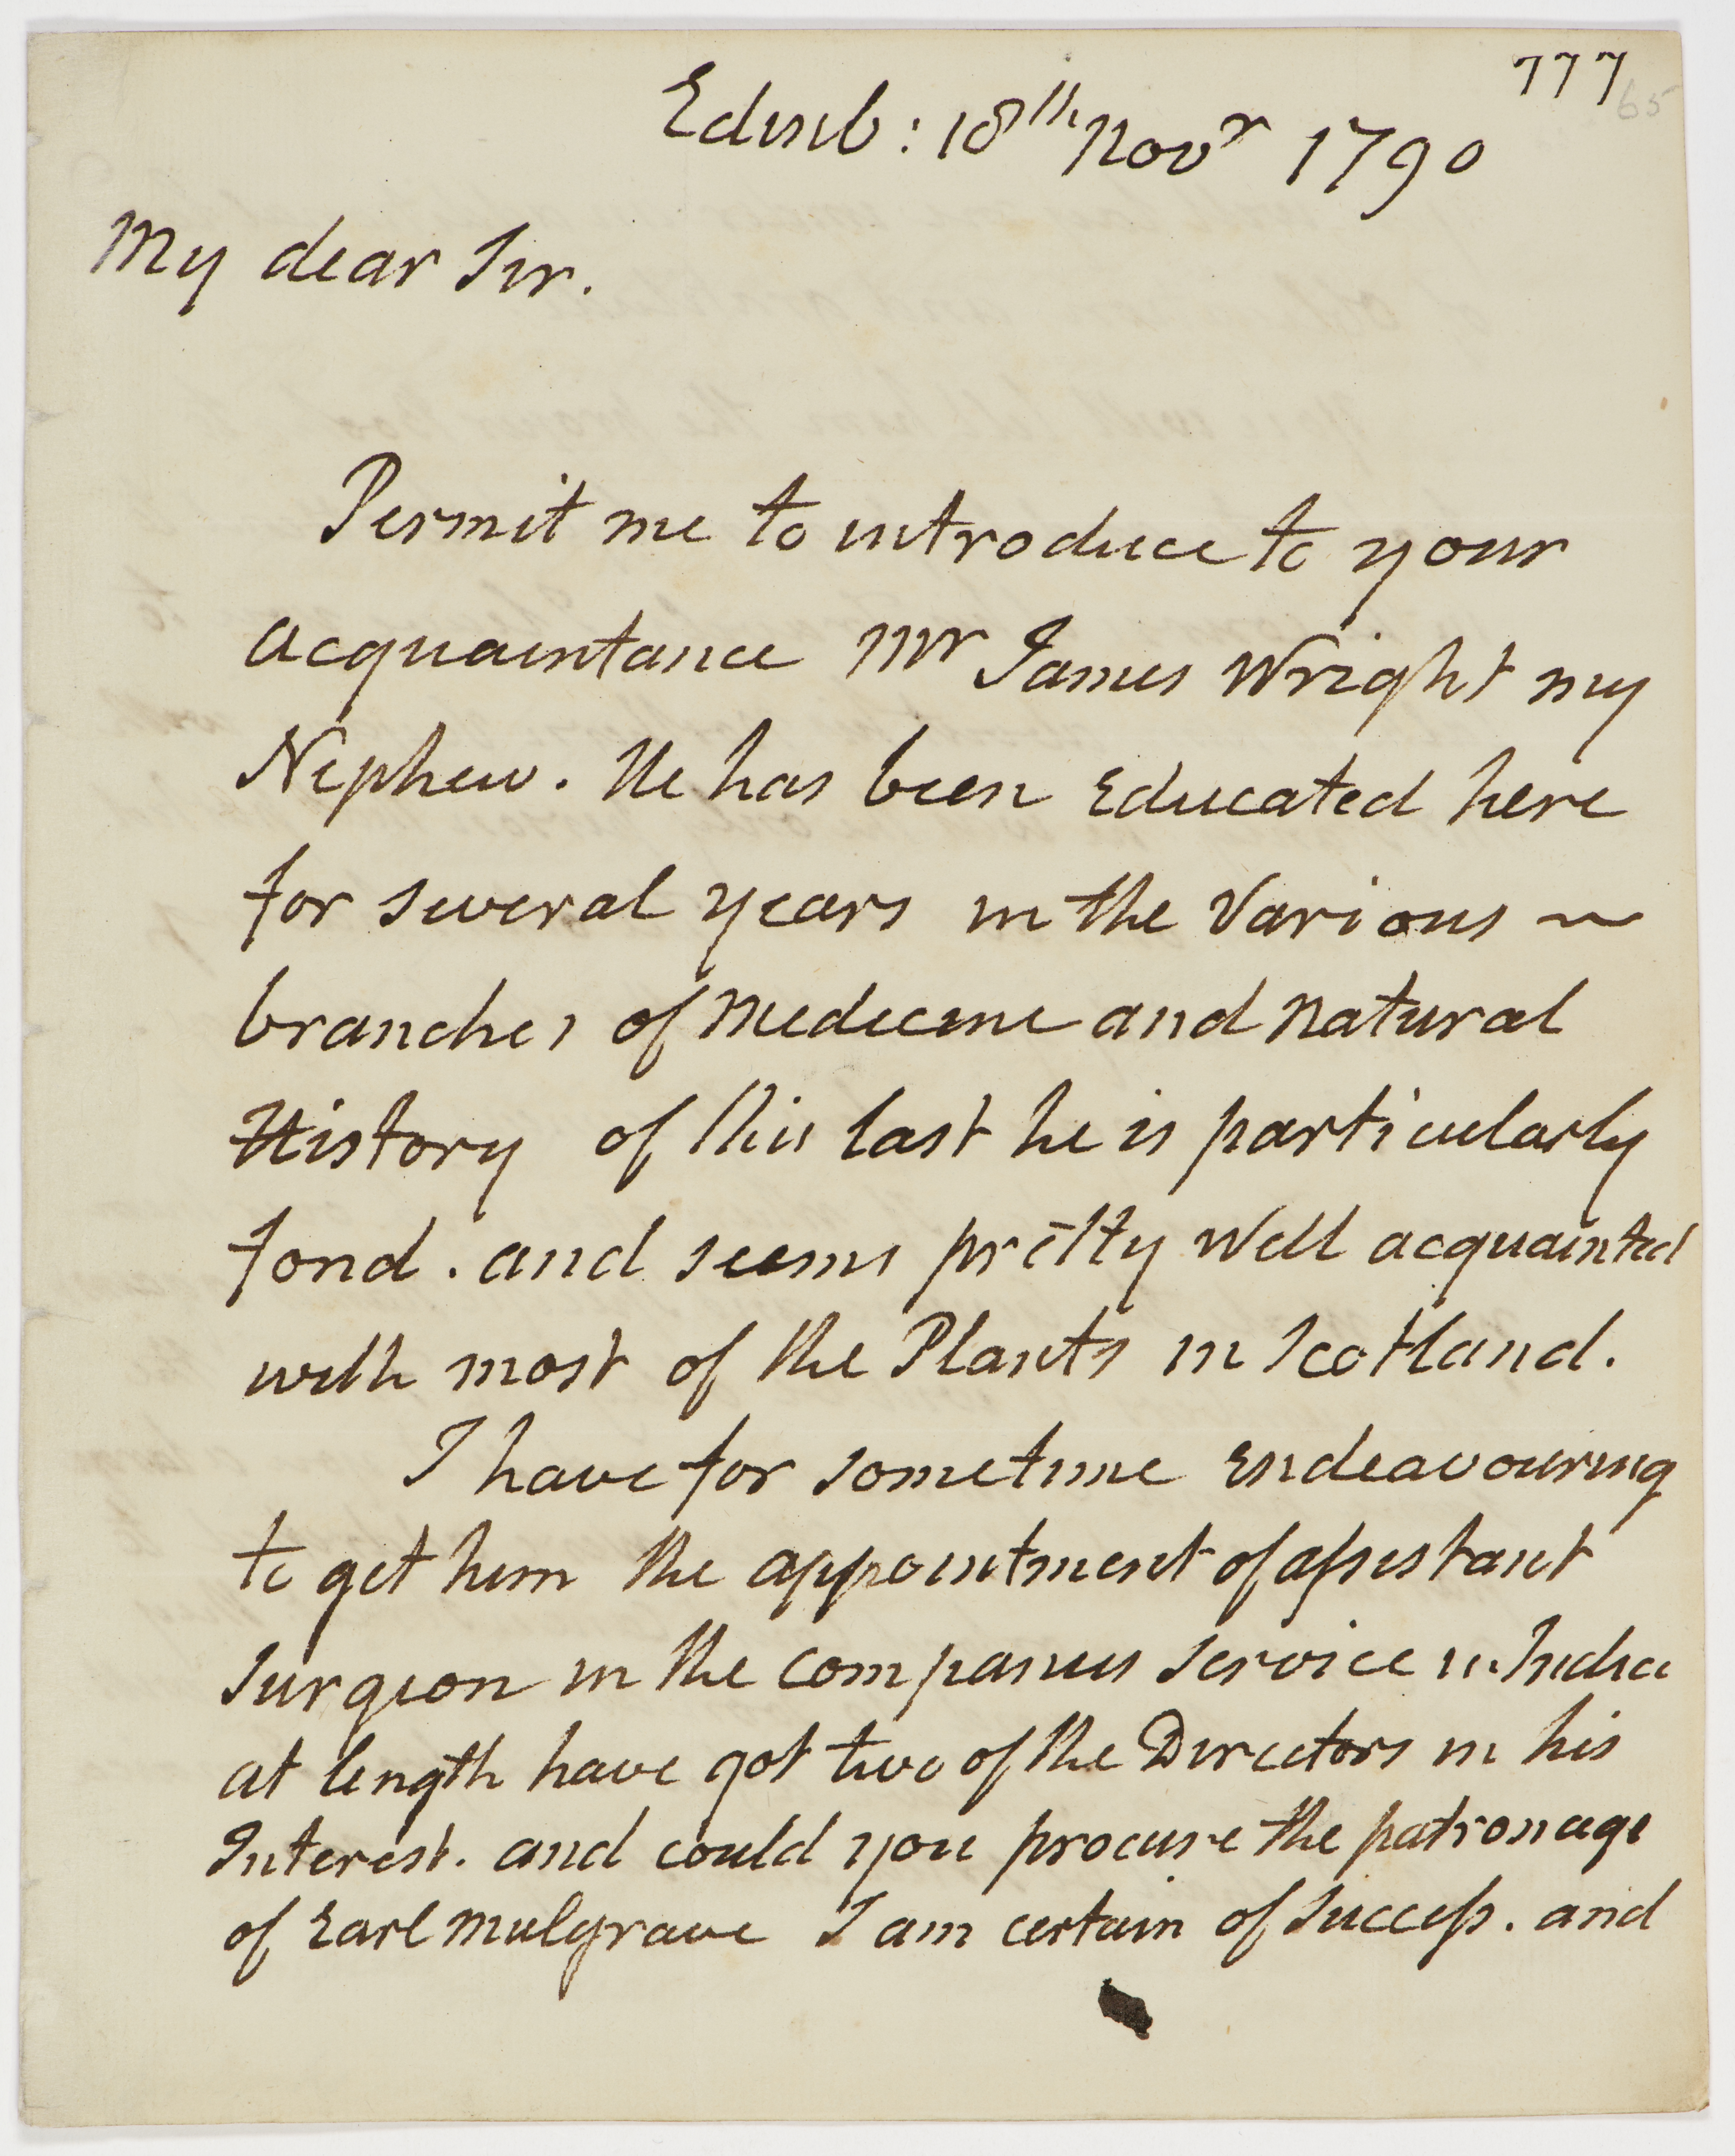 777
65
Edinb: 18th Novr 1790
My dear Sir.
Permit me to introduce to your
acquaintance Mr James Wright my
Nephew. He has been Educated here
for several years in the Various ~
branches of Medecine and Natural
History of this last he is particularly
fond. and seems pretty well acquainted
with most of the Plants in Scotland.
I have for sometime Endeavouring
to get him the appointment of assistant
Surgeon in the Companies Service in India
at length have got two of the Directors in his
Interest. and could you procure the patronage
of Earl Mulgrave I am certain of Success. and